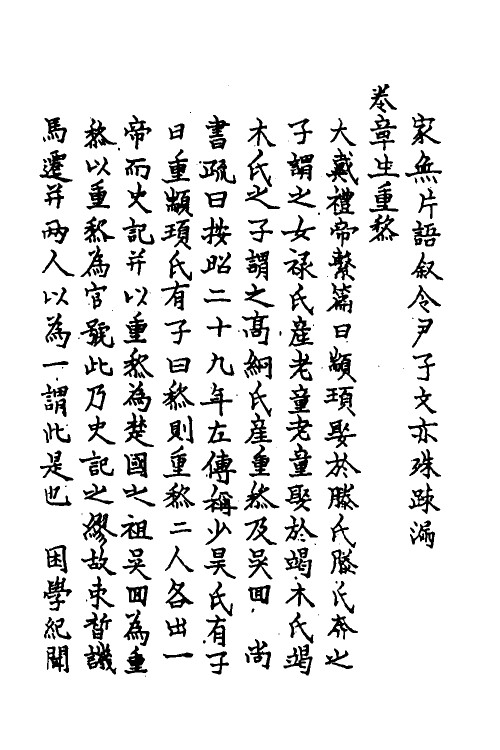 家無片語叙令尹子文亦殊疎漏
卷章生重黎
大戴禮帝繫篇曰顓頊娶於滕氏滕氏奔之
子謂之女祿氏產老童老童娶於竭木氏竭
木氏之子謂之高䋞氏產重黎及吳回　尚
書疏曰按昭二十九年左傳稱少昊氏有子
曰重顓頊氏有子曰黎則重黎二人各出一
帝而史記并以重黎為楚國之祖吳回為重
黎以重黎為官號此乃史記之繆故束晳譏
馬遷并兩人以為一謂此是也　困學紀聞